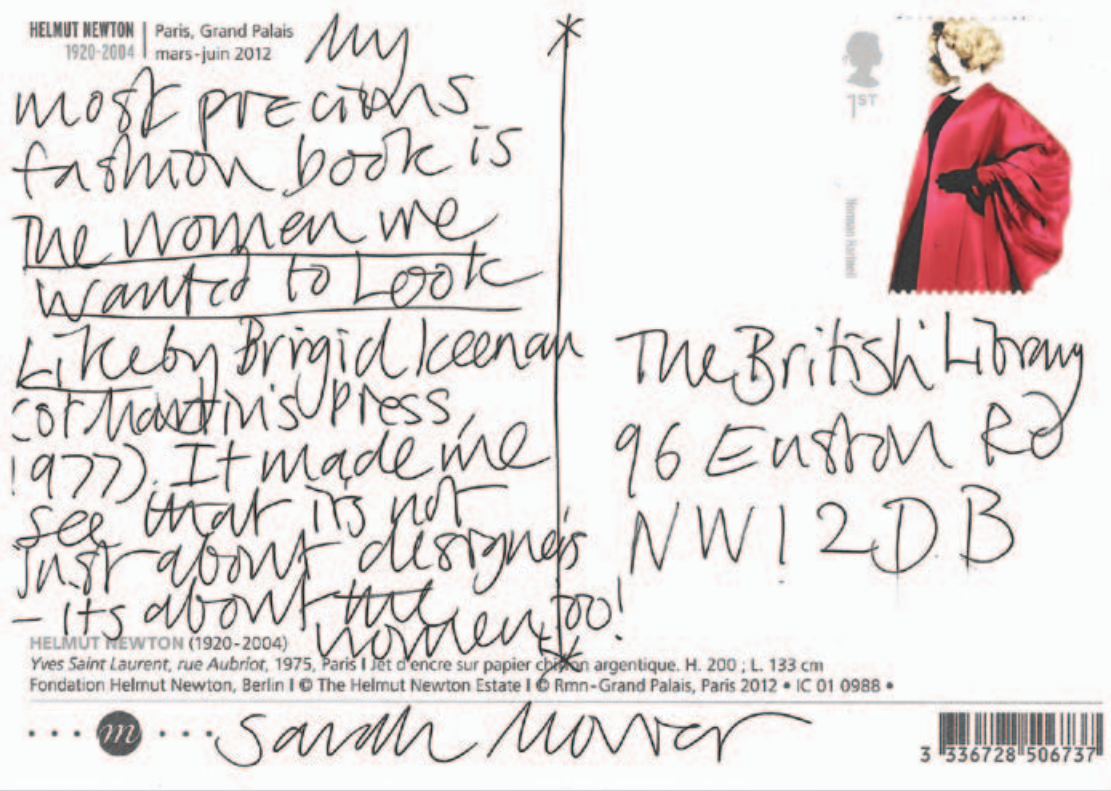 HELMUT NEWTON | Paris, Grand Palais
1920-2004 | mars-juin 2012
My
most precious
fashion book is
The Women We
Wanted to Look
Like by Brigid Keenan
(St Martin's Press,
1977). It made me
see that its not
just about designers
- its about the
women, too!
1ST
Norman Hartnell
The British Library
96 Euston Rd
NW1 2DB
HELMUT NEWTON (1920-2004)
Yves Saint Laurent, rue Aubriot, 1975, Paris I Jet d'encre sur papier chiffon argentique. H. 200 ; L. 133 cm
Fondation Helmut Newton, Berlin I © The Helmut Newton Estate I © Rmn-Grand Palais, Paris 2012 • IC 01 0988 •
m
Sarah Mower
3 336728 506737